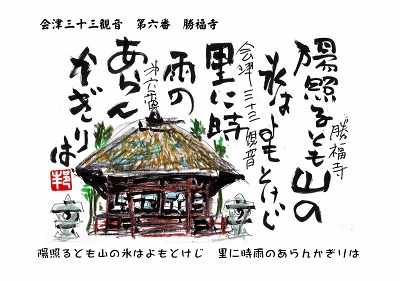 会津三十三観音　第六番　勝福寺
陽照るとも山の
氷はよもとけじ
里に時
雨の
あらん
かぎりは
勝福寺
会津三十三観音
第六番
陽照るとも山の氷はよもとけじ　里に時雨のあらんかぎりは